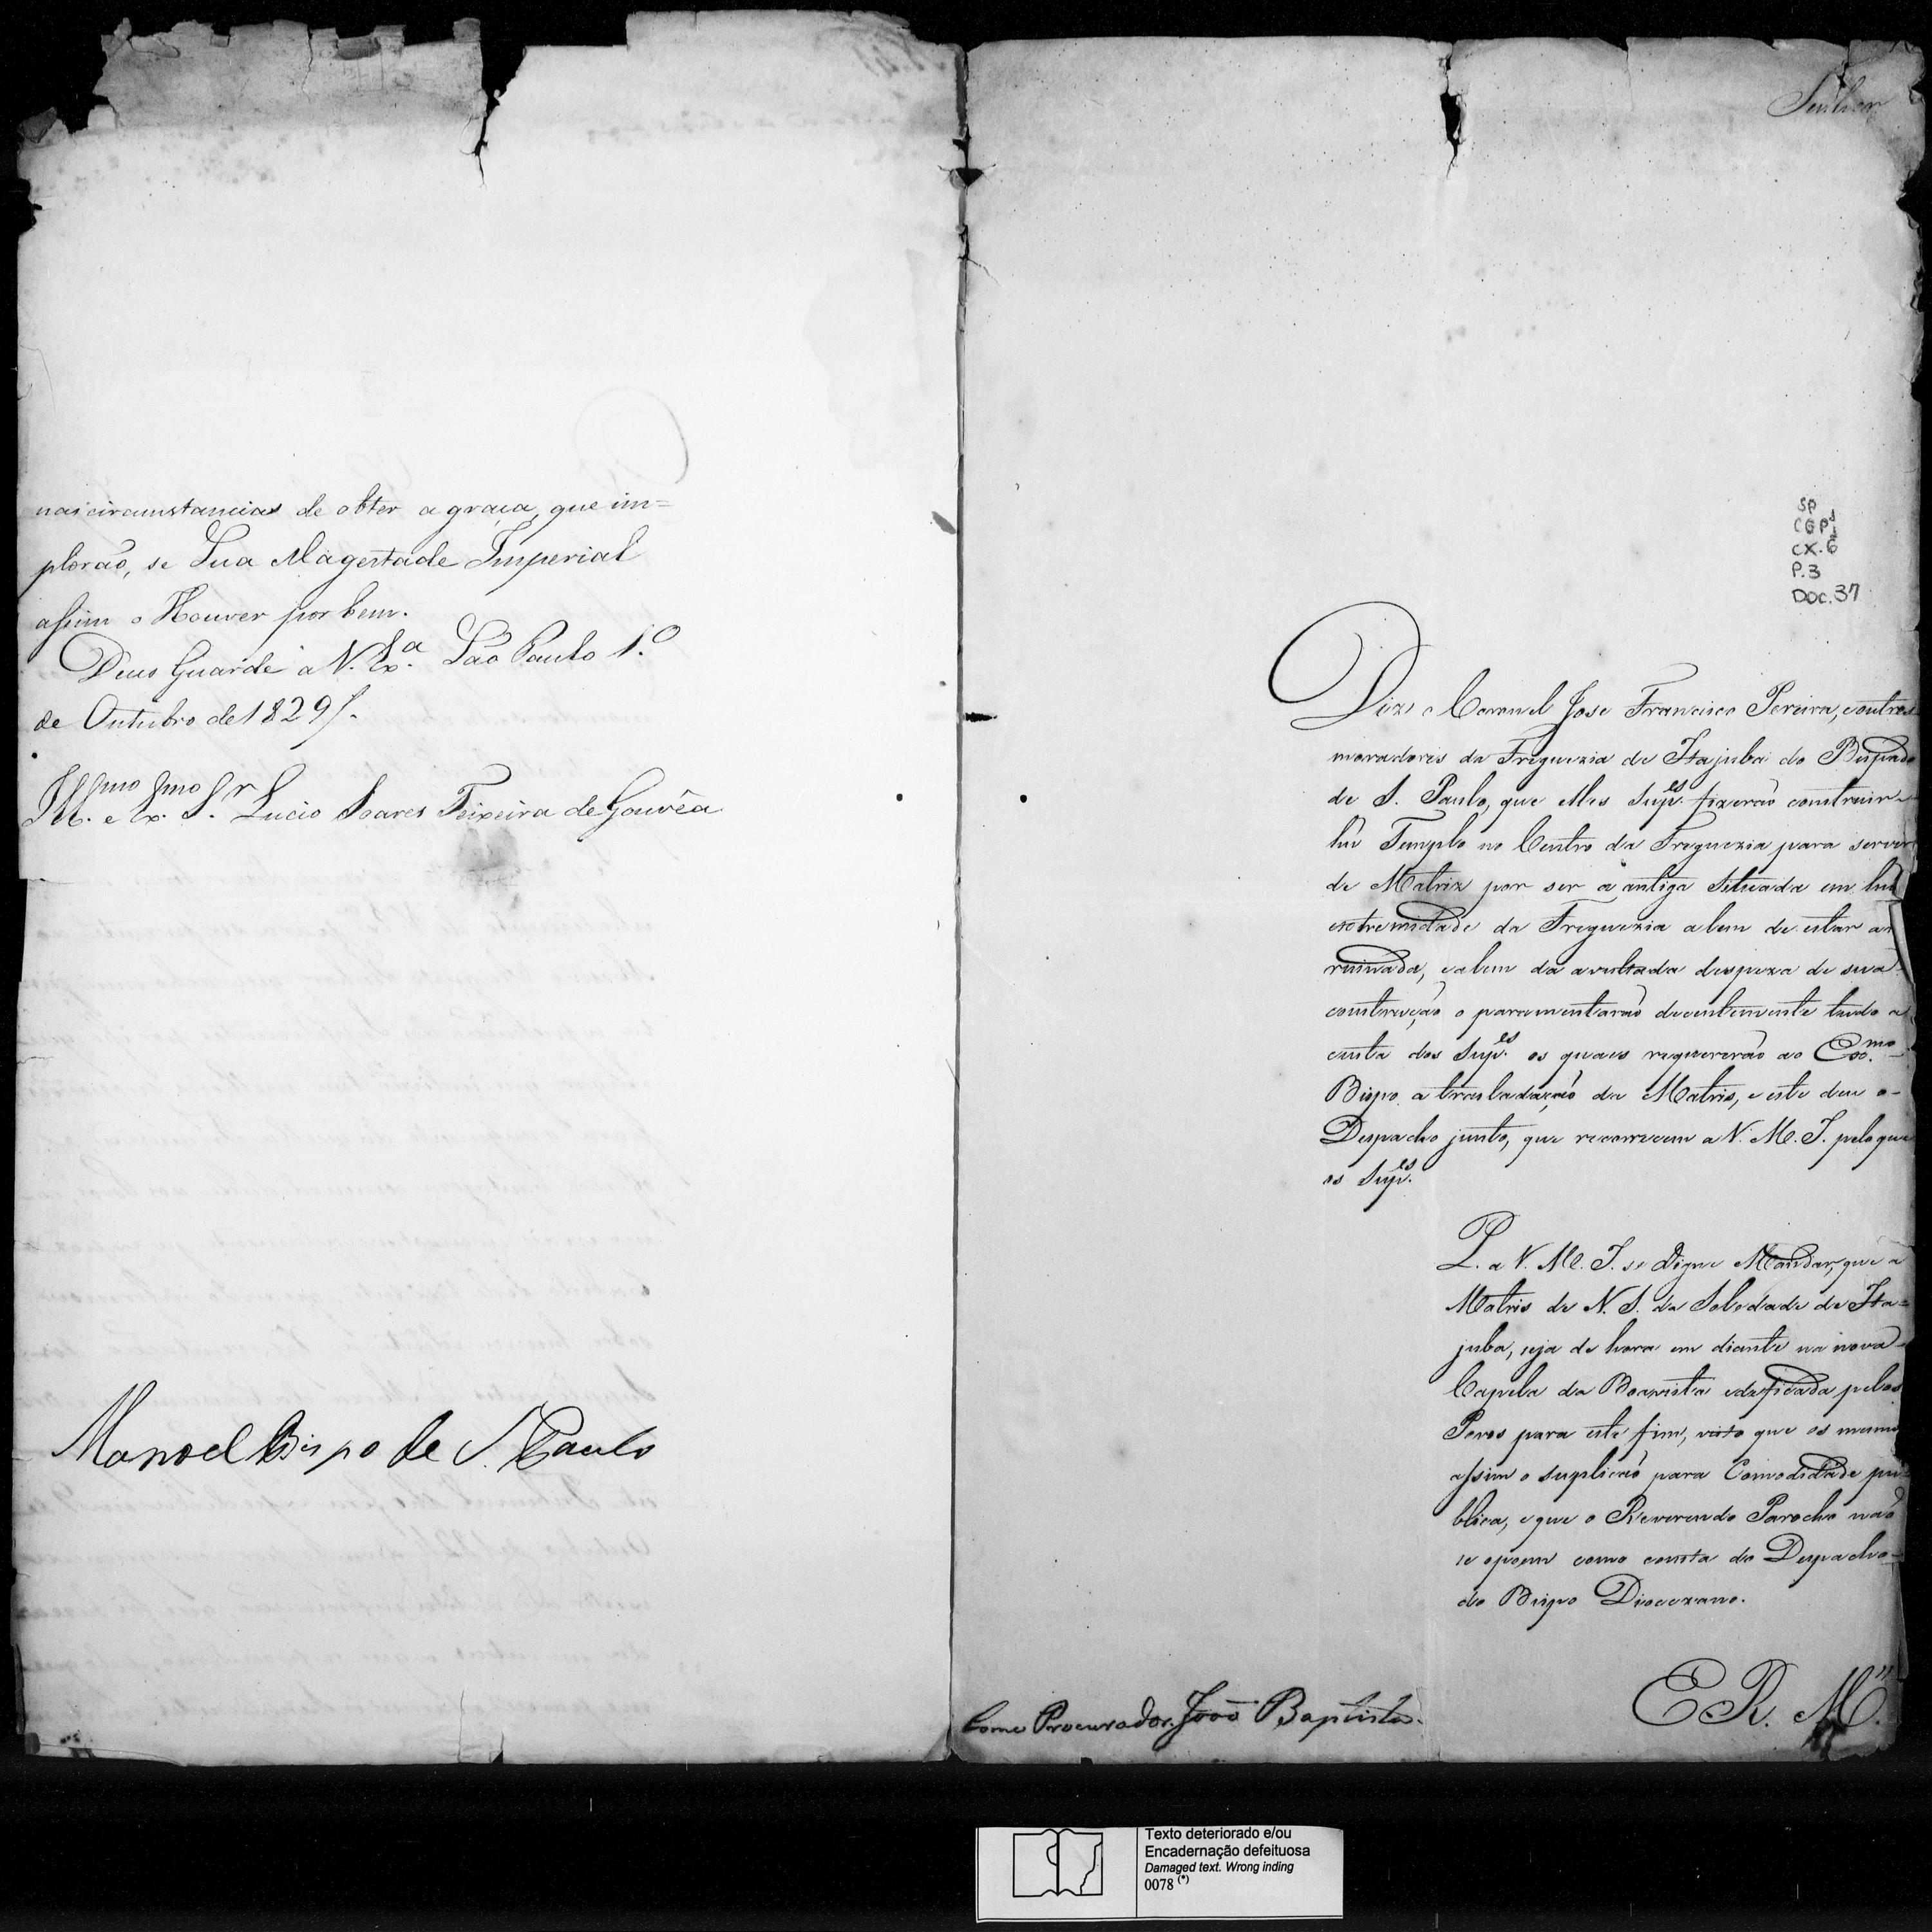 nas circunstancias de obter a graça, que im=
plorão, se Sua Magestade Imperial
assim o Houver por bem.
Deus Guarde a V. Ex.ª São Paulo 1.º
de Outubro de 1829/.
Ill.mo e Ex.mo S.r Lucio Soares Teixeira de Gouvêa
Manoel Bispo de S. Paulo
Senhor
SP
CGP1
CX. 6
P. 3
DOC. 37
Diz o Coronel Jose Francisco Pereira, e outros
moradores da Freguezia de Itajuba do Bispado
de S. Paulo, que elles Sup.es fizerão construir
hũ Templo no Centro da Freguezia para servir
de Matriz por ser a antiga Situada em huã
extremidade da Freguezia alem de estar ar
ruinada, e alem da avultada despeza de sua
construcção o paramentarão decentemente tudo a
custa dos Sup.es os quaes requererão ao Ex.mo
Bispo a trasladação da Matris, e este deu o
Despacho junto, que recorrecem a V. M. I. pelo que
os Sup.es
P. a V. M. I. se Digne Mandar, que a
Matris de N. S. da Soledade de Ita=
juba, seja de hora em diante na nova
Capela da Boavista edificada pelos
Povos para este fim, visto que os mesmos
assim o suplicão para Comodidade pu=
blica, e que o Reverendo Parocho não
se opoem como consta do Despacho
do Bispo Diocezano.
E R. M.
Como Procurador. João Baptista.
Texto deteriorado e/ou
Encadernação defeituosa
Damaged text. Wrong inding
0078 (*)